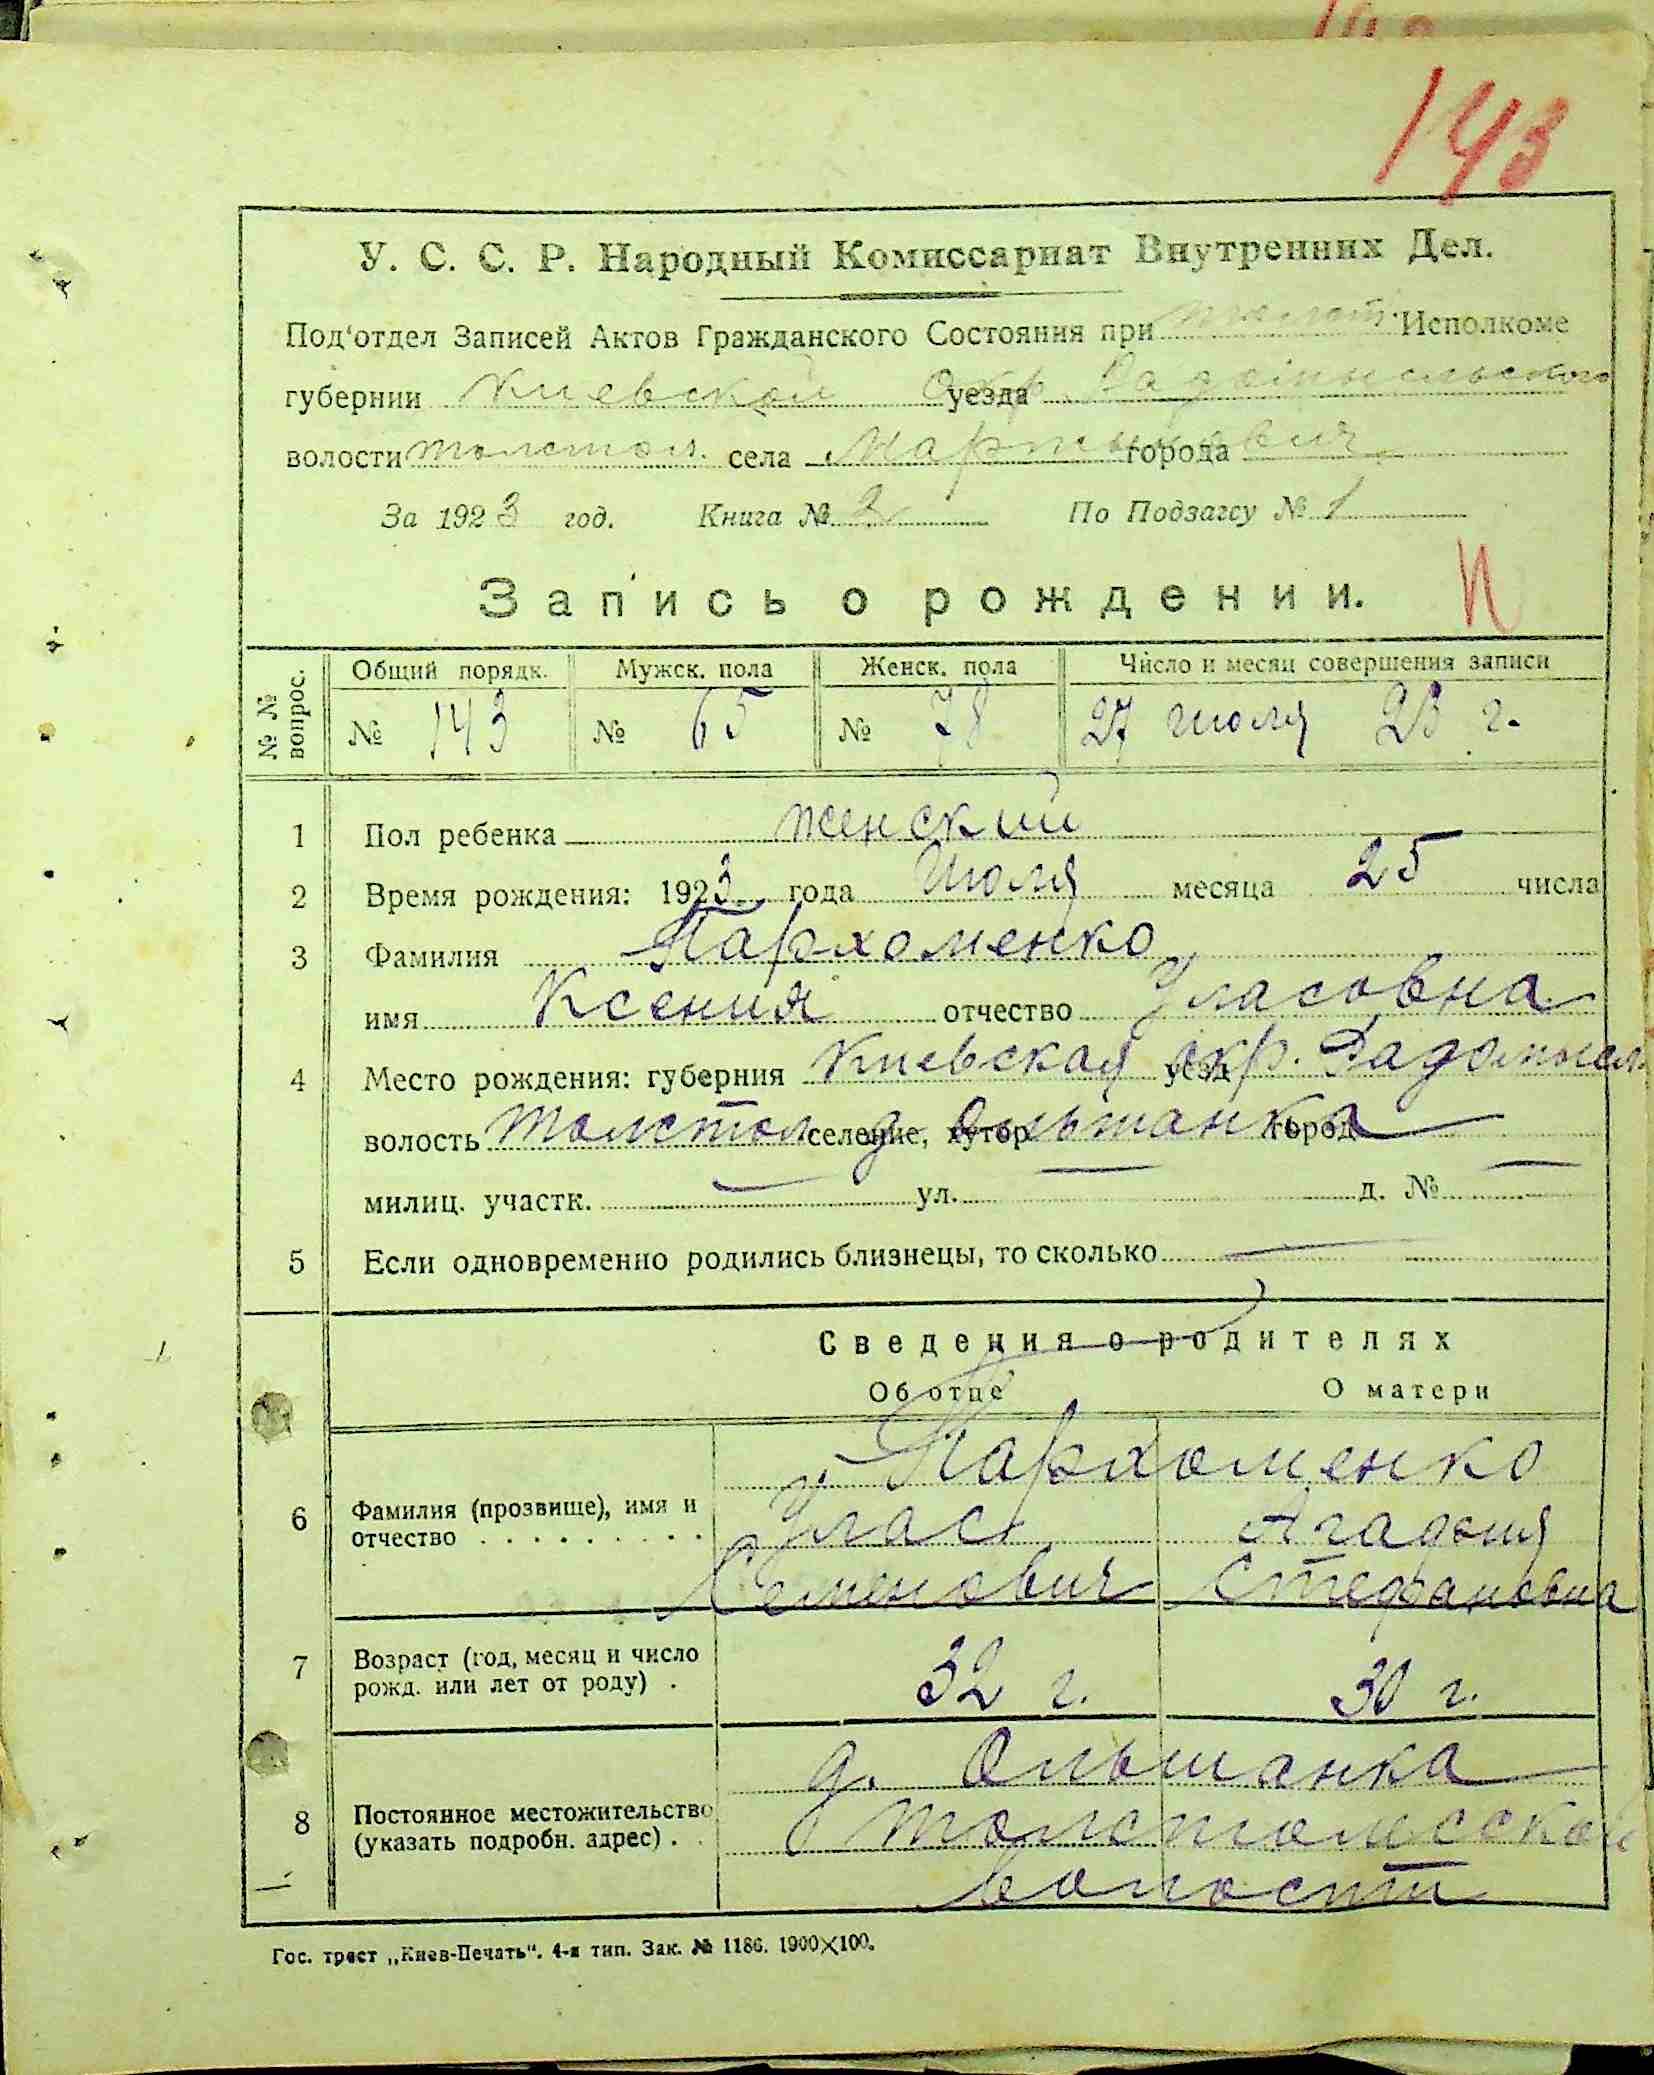 143
У. С. С. Р. Народный Комиссариат Внутренних Дел.
Под'отдел Записей Актов Гражданского Состояния при Исполкоме
губернии Киевской уезда Окр. Радомысльского
волости Толстол. села Мартынович города
За 1923 год. Книга № 2 По Подзагсу № 1
Запись о рождении. И
№№ вопрос. Общий порядк. Мужск. пола Женск. пола Число и месяц совершения записи
№ 143 № 65 № 78 27 июля 23 г.
1 Пол ребенка женский
2 Время рождения: 1923 года Июля месяца 25 числа
3 Фамилия Пархоменко
имя Ксения отчество Уласовна
4 Место рождения: губерния Киевская уезд окр. Радомысл
волость Толстол селение, хутор д. Ольшанка город
милиц. участк. — ул. — д. № —
5 Если одновременно родились близнецы, то сколько —
Сведения о родителях
Об отце О матери
6 Фамилия (прозвище), имя и отчество . . . . . . . . .
Пархоменко
Улас Агафия
Семенович Стефановна
7 Возраст (год, месяц и число рожд. или лет от роду) .
32 г. 30 г.
8 Постоянное местожительство (указать подробн. адрес) . .
д. Ольшанка
Толстолесской
волости
Гос. трест „Киев-Печать“. 4-я тип. Зак. № 1186. 1900×100.